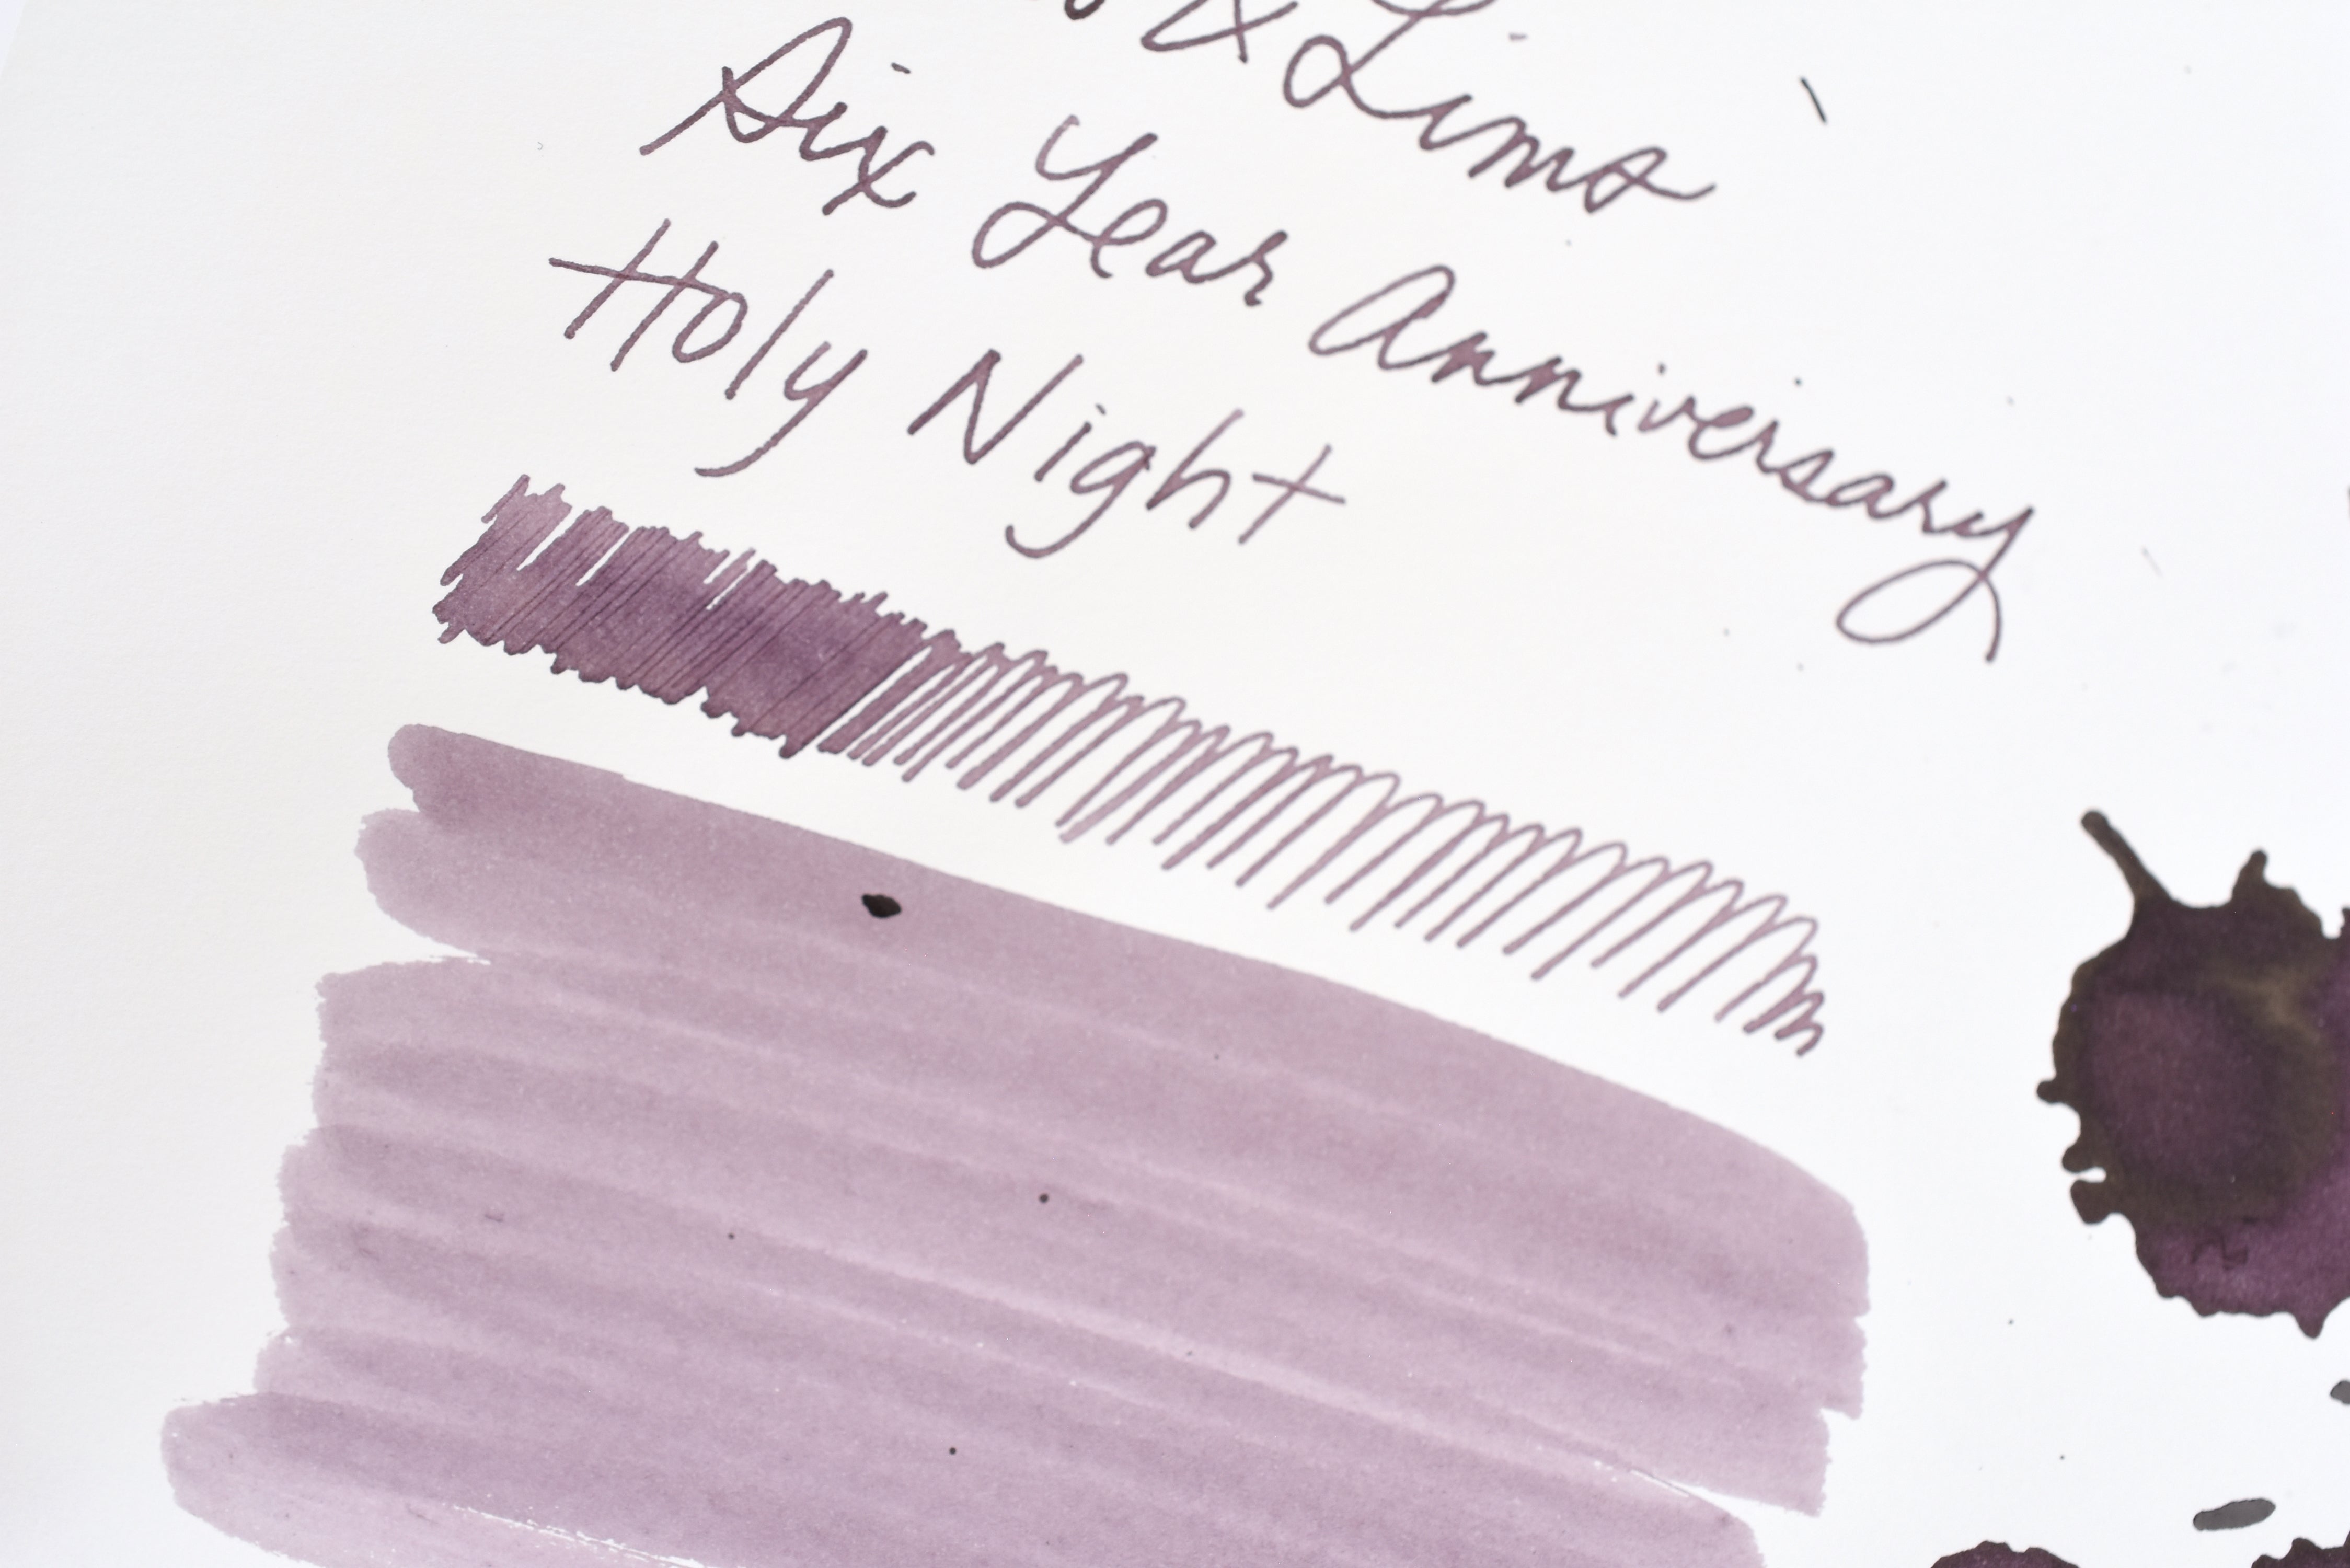 & Lima
Six Year Anniversary
Holy Night